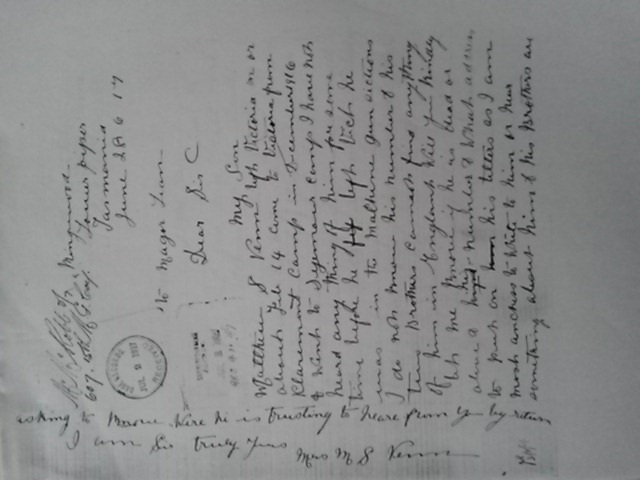 Lower piper
Tasmania
June 28 6 17
To Major Lean
Dear Sir
My Son
Matthew S Venn left Victoria on or
about Feb 14 Come to Victoria from
Claremont Camp in December 1916
& Went to Seymour Camp I have not
heard any thing of him for some
time before he left Vict he
was in the Machine Gun sections
I do not know his number & his
two Brothers cannot find anything
of him in England Will you kindly
let me know if he is dead or
alive & his number & What address
to put on his letters as I am
most anches to Write to him or hear
something about him & his Brothers are
asking to know Were he is trusting to heare from you by return
I am Sir truly yours
Mrs M S Venn